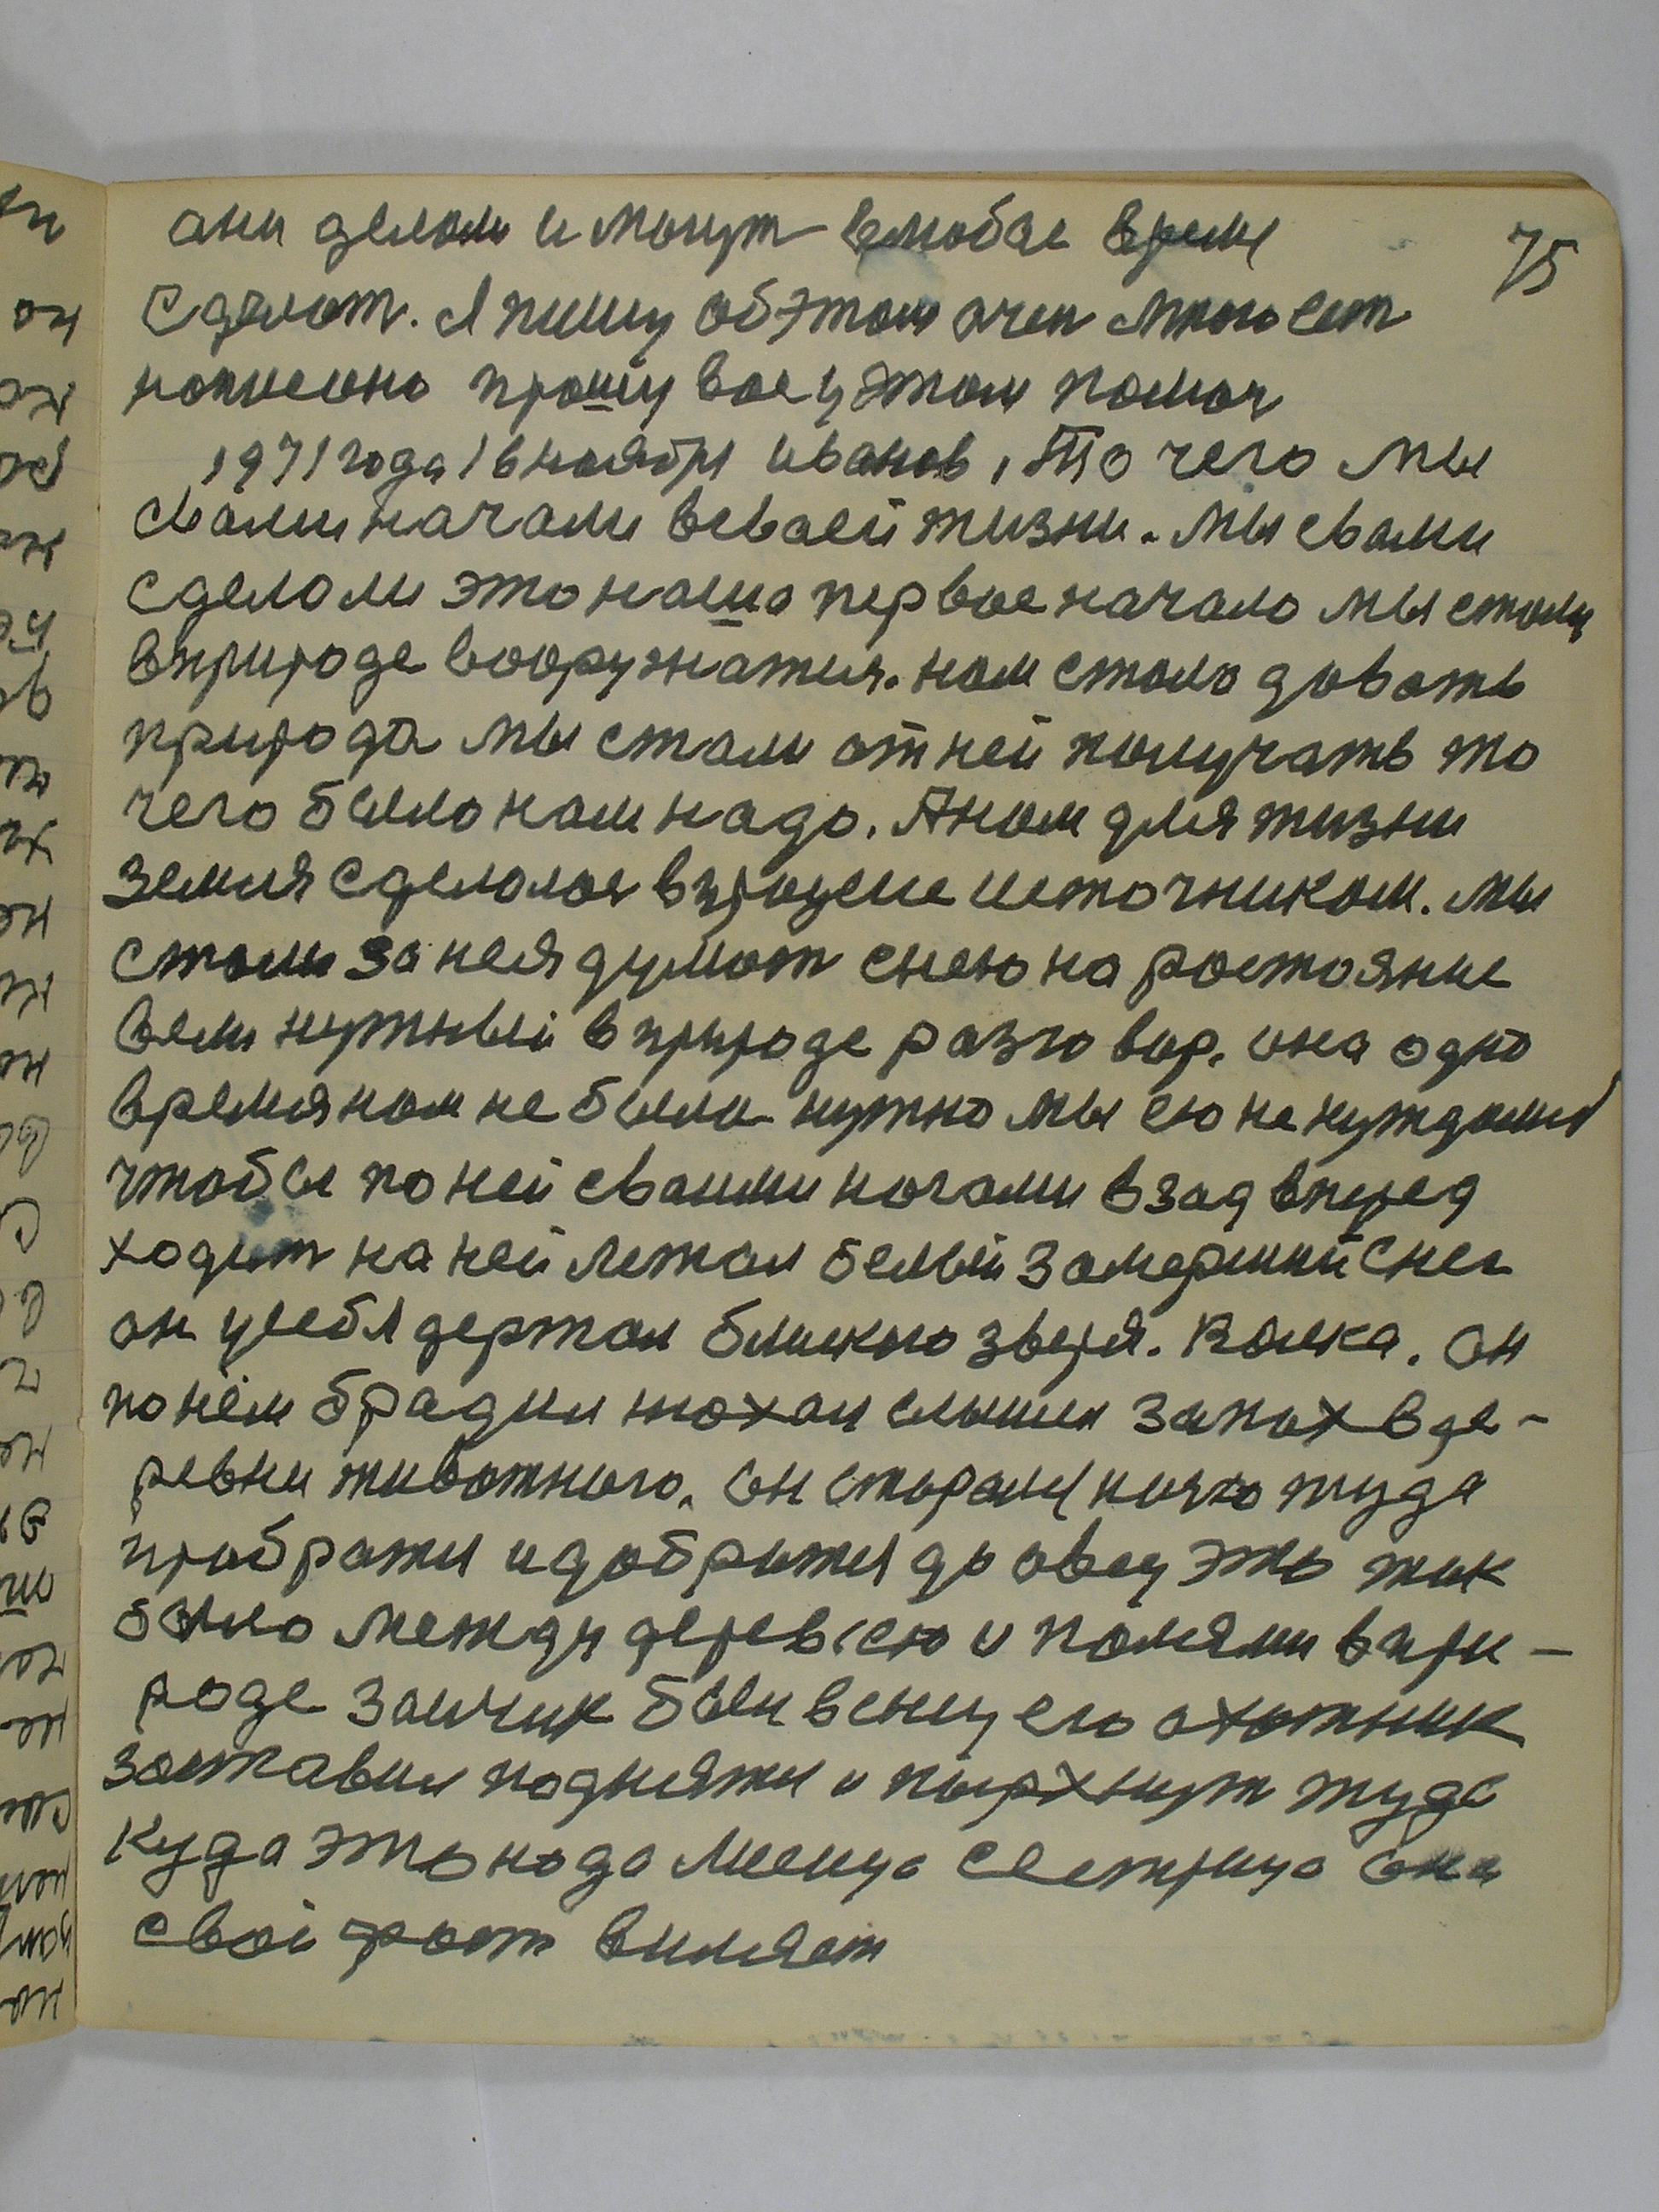 ани делали и могут влюбое время
75
сделат. Я пишу обэтом очен много ест
написоно прошу вас уэтом помоч
1971 года 16 ноября иванов, То чего мы
свами начали всваей жизни. мы свами
сделоли это наша первое начало мы стали
вприроде вооружатся. нам стала довать
природа мы стали от ней получать то
чего было нам надо. А нам для жизни
земля сделолас впроцесе источником. мы
стали за нея думат снею на ростояние
вели нужный вприроде разговор. она одно
время нам не была нужно мы ею не нуждались
чтобы по ней сваими ногами взад вперед
ходит на ней лежал белый замерший снег
он усебя держал близкого зверя. Волка. он
по нём брадил нюхал слышел запах вде-
ревни животного. он старался ничго туда
пробратся идобратся до овец это так
было между деревнею и полями впри-
роде зайчик был всниу его охотник
заставил поднятся и пырхнут туда
куда это нада лисица сестрица она
свой хвост виляет